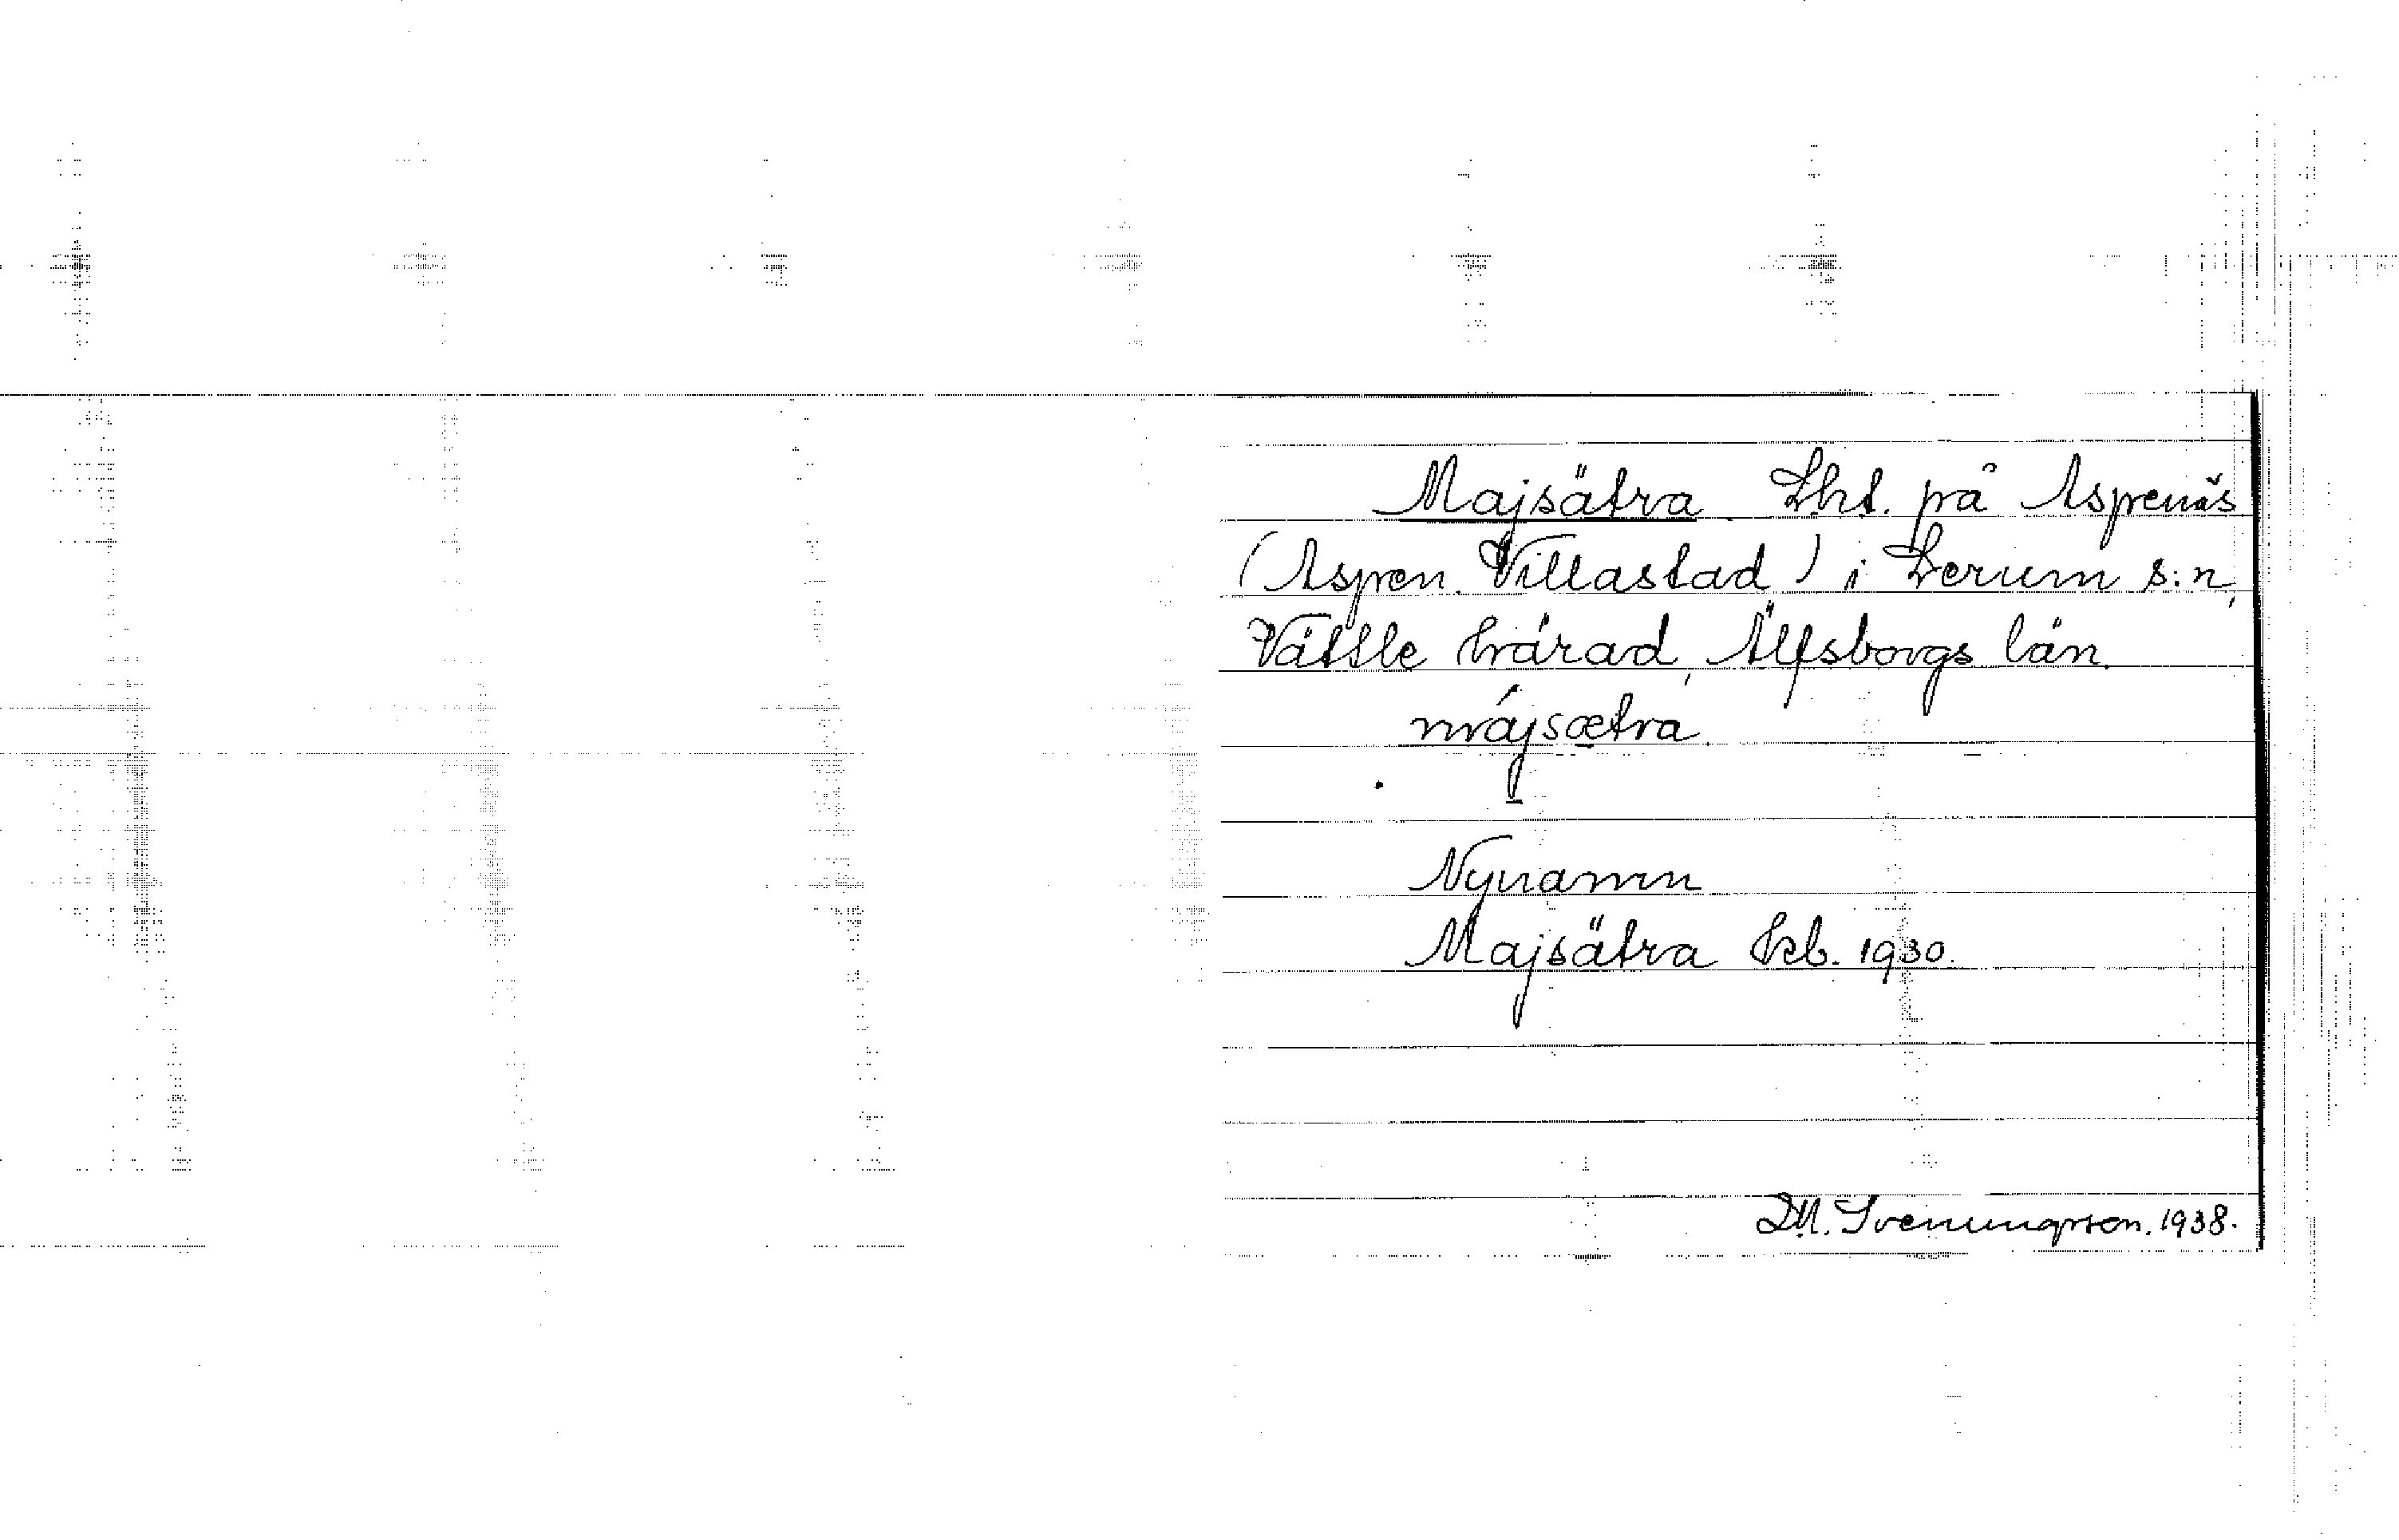 Majsätra Lht. på Aspenäs
(Aspen. Villastad) i Lerum s:n,
Vättle härad, Älfsborgs län.
májsætra
Nynamn
Majsätra Jrb. 1930.
D.M. Svenungsson. 1938.